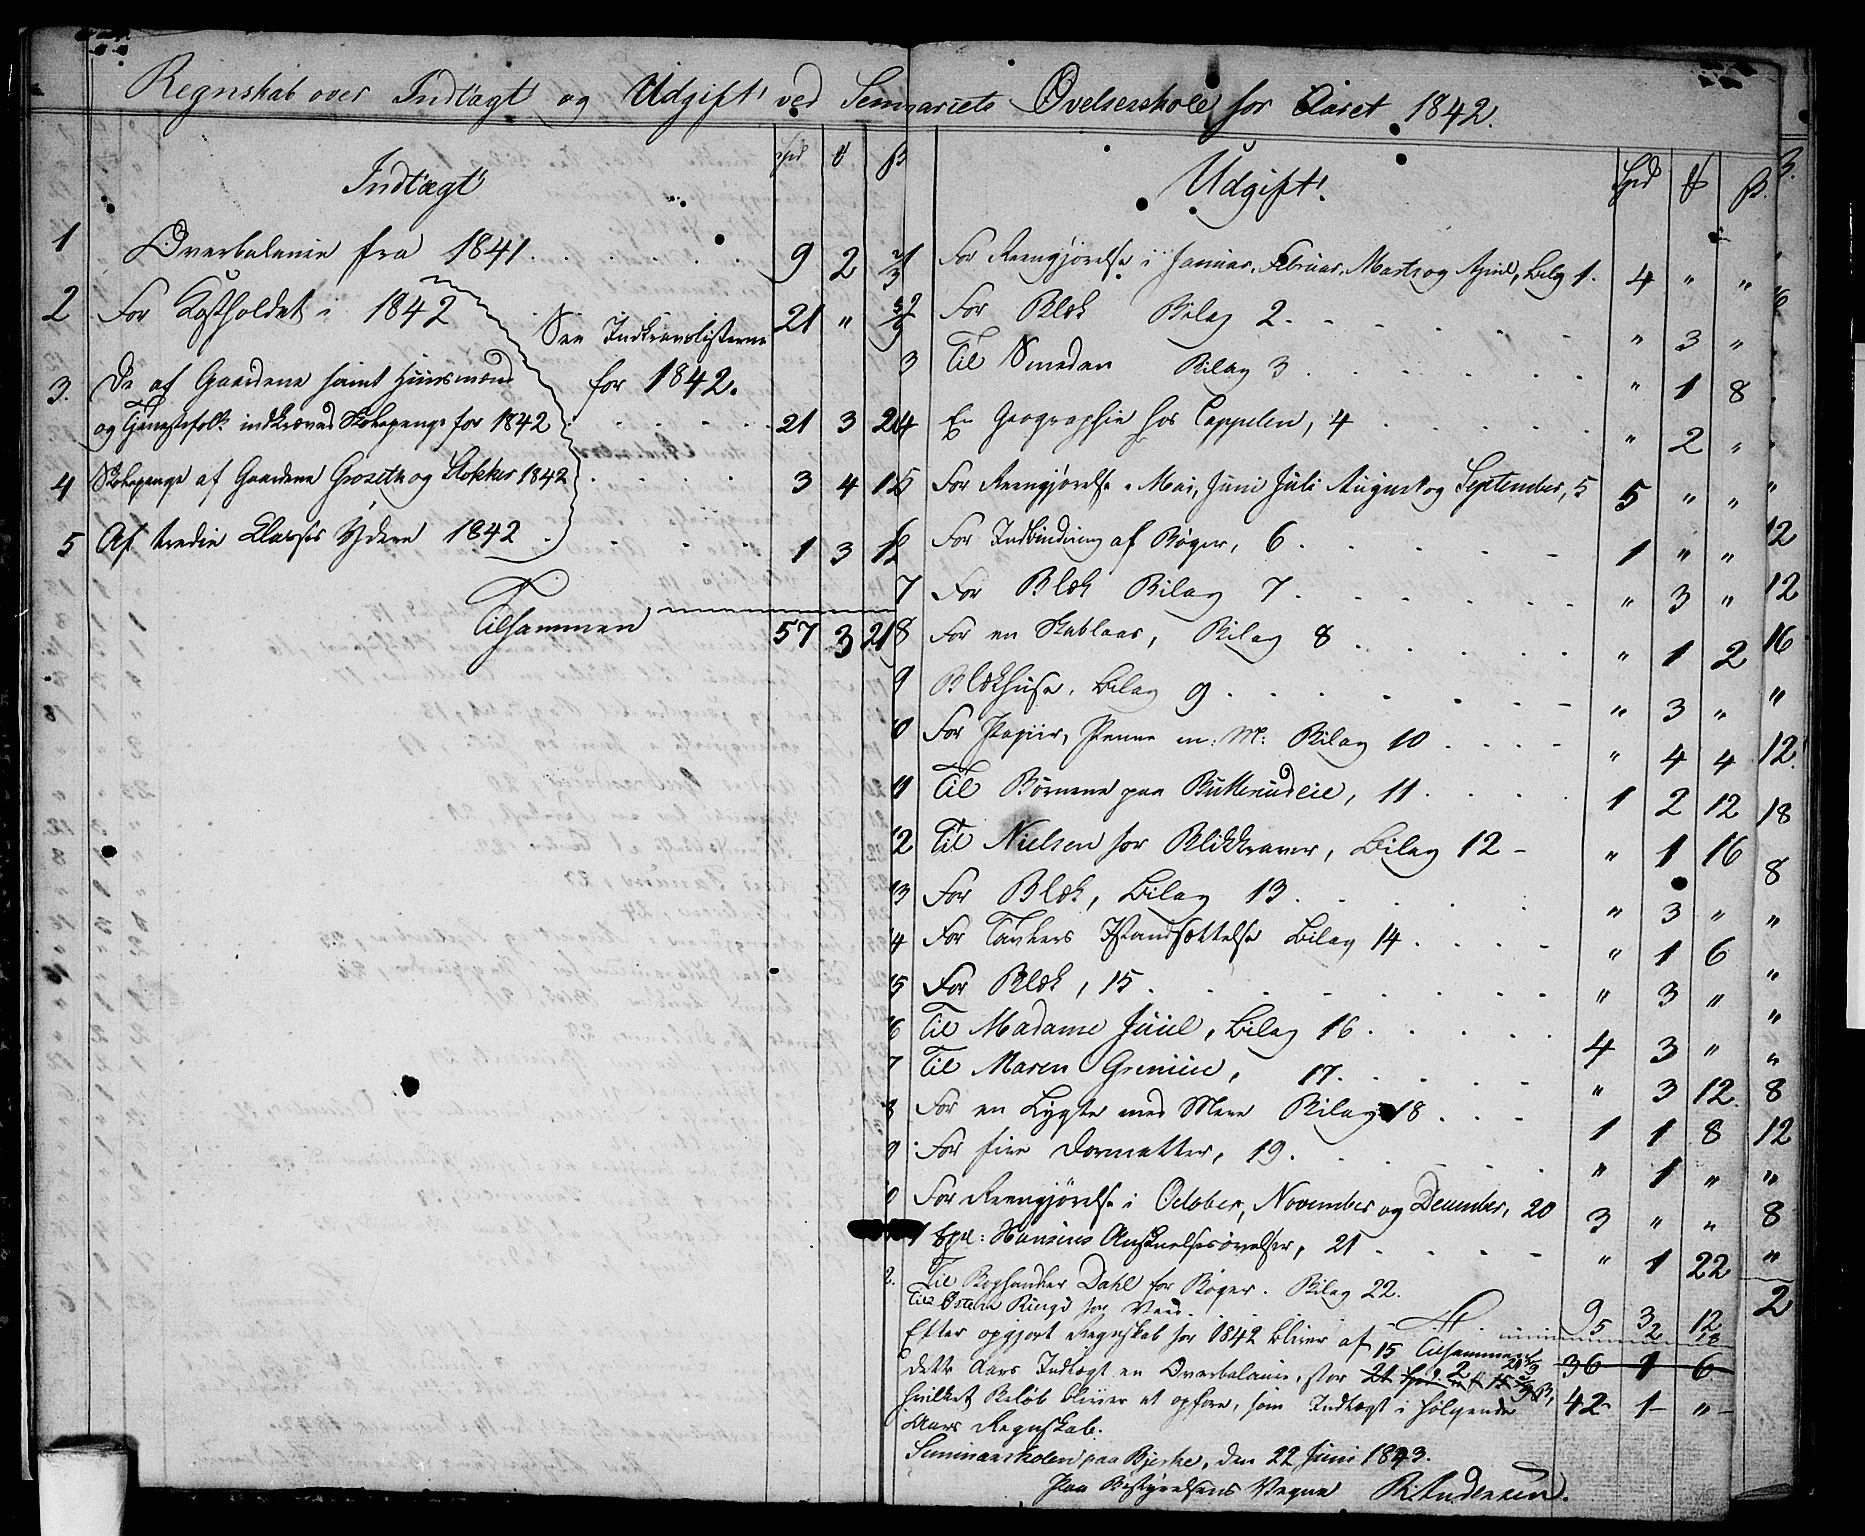 Regnskab over Indtægt og Udgift ved Seminariets Øvelsesskole for Aaret 1842.
Indtægt
Spd
1 Overbalance fra 1841. 9 2
2 For Kostholdet i 1842 21 "
See Indkravslisterne
for 1842.
3. De af Gaardene samt Huusmænd
og Tjenestefolk indkrævede Skolepenge for 1842 21 3 2
4 Skolepenge af Gaardene Groseth og Stokker 1842 3 4 1
5 Af tredie Classes Ydere 1842 1 3 12
Tilsammen 57 3 21
Udgift.
Spd ß.
1 For Reengjørelse i Januar, Februar, Marts og April, Bilag 1. 4 " "
2 For Blæk Bilag 2. " 3 "
3 Til Smeden Bilag 3 " 1 8
4 En Geographie hos Cappelen, 4 " 2 "
5 For Reengjørelse i Mai, Juni Juli August og September, 5 5 " "
6 For Indbinding af Bøger, 6 1 " "
7 For Blæk Bilag 7 " 3 "
8 For en Skablaas, Bilag 8 " 1 2
9 Blækhuse, Bilag 9 " 3 "
0 For Papiir, Penne m: M: Bilag 10 " 4 4
11 Til Børnene paa Butterudeie, 11 1 2 12
12 Til Nielsen for Blikkramer, Bilag 12 " 1 16
13 For Blæk, Bilag 13 " 3 "
14 For Tavlers Istandsættelse Bilag 14 " 1 6
15 For Blæk, 15 " 3 "
6 Til Madame Juul, Bilag 16 4 3 "
7 Til Maren Grenie, 17. " 3 12
8 For en Lygte med Mere Bilag 18 1 1 8
9 For fire Dormatter, 19. " 1 "
0 For Reengjørelse i October, November og December, 20 3 " "
1 Expl: Hansens Anskuelsesøvelser, 21 " 1 22
2. Til Boghandler Dahl for Bøger. Bilag 22. 9 3 12
Til Ring for Veed. 5 2 18
Tilsammen 36 1 6
Efter opgjort Regnskab for 1842 bliver af
dette Aars Indtægt en Overbalance, stor 15
hvilket Beløb bliver at opføre, som Indtægt i følgende 42 1 "
Aars Regnskab.
Seminarskolen paa Bjerke, den 22 Juni 1843.
Paa Bestyrelsens Vegne R Andersen.
12
12
16
"
12
18
8
"
"
"
"
8
12
"
8
"
2